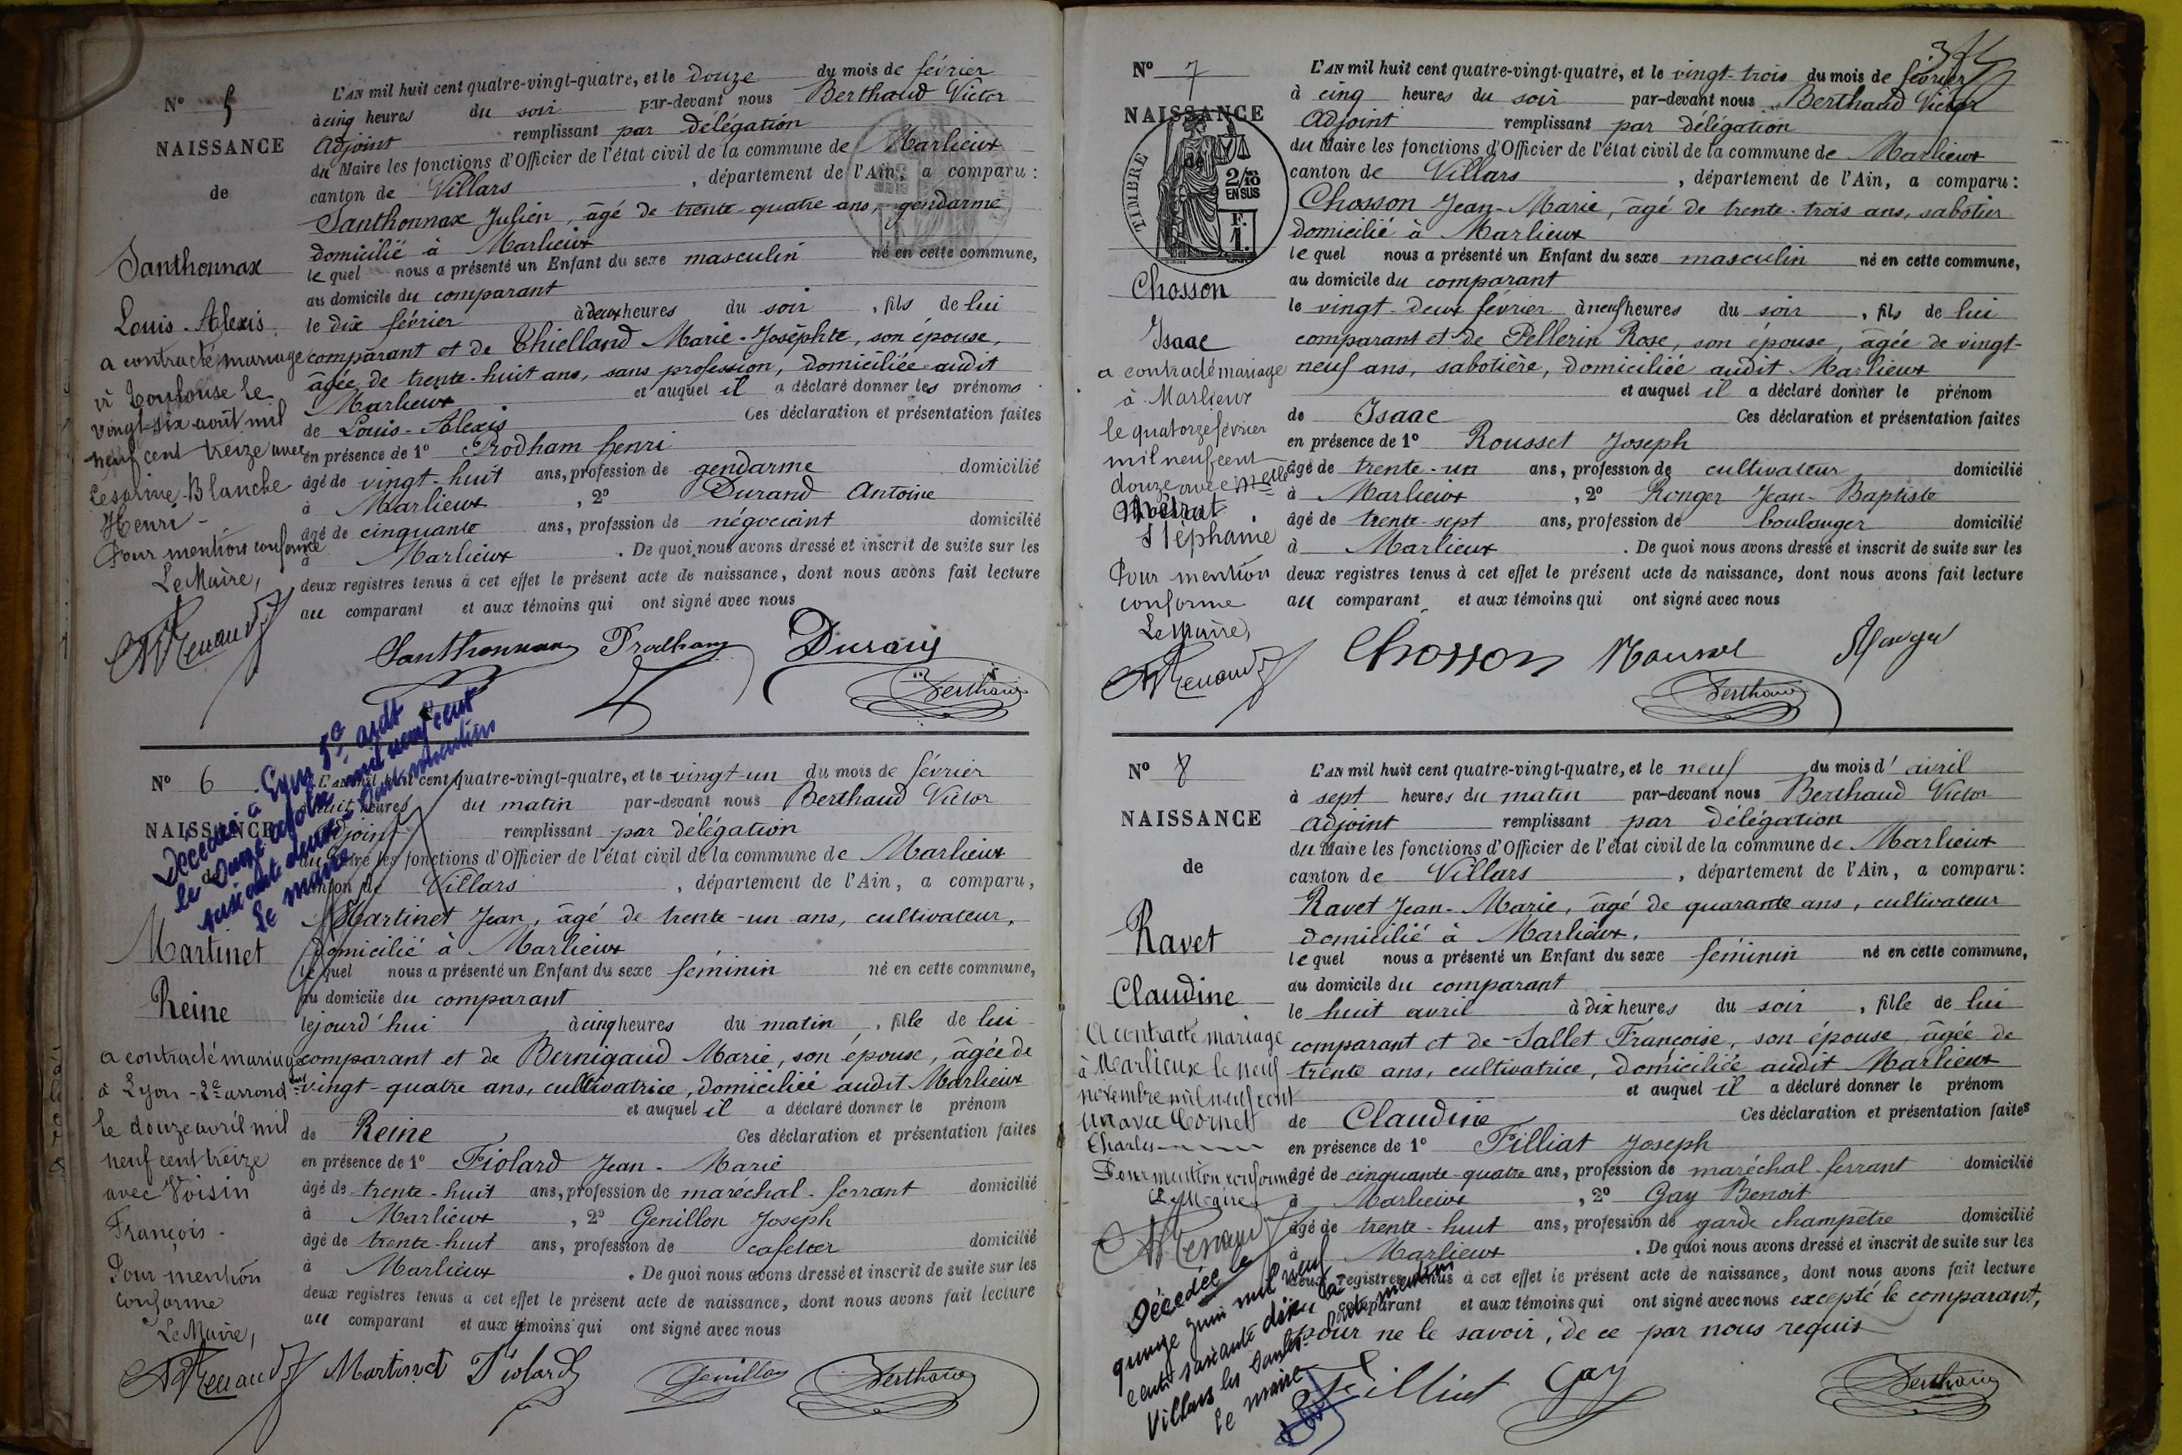 N° 5
NAISSANCE
de
Santhonnax
Louis-Alexis
a contracté mariage
à Toulouse le
vingt-six août mil
neuf cent treize avec
Blanche
Henri-
Pour mention conforme
Le Maire,
L'an mil huit cent quatre-vingt-quatre, et le douze du mois de février
à cinq heures du soir par-devant nous Berthaud Victor
Adjoint remplissant par délégation
du Maire les fonctions d'Officier de l'état civil de la commune de Marlieux
canton de Villars, département de l'Ain, a comparu:
Santhonnax Julien, âgé de trente-quatre ans, gendarme
domicilié à Marlieux
lequel nous a présenté un Enfant du sexe masculin né en cette commune,
au domicile du comparant
le dix février à deux heures du soir, fils de lui
comparant et de Thielland Marie-Josephte, son épouse,
âgée de trente-huit ans, sans profession, domiciliée audit
Marlieux et auquel il a déclaré donner les prénoms
de Louis-Alexis Ces déclaration et présentation faites
en présence de 1° Prodham henri
âgé de vingt-huit ans, profession de gendarme domicilié
à Marlieux, 2° Durand Antoine
âgé de cinquante ans, profession de négociant domicilié
à Marlieux. De quoi nous avons dressé et inscrit de suite sur les
deux registres tenus à cet effet le présent acte de naissance, dont nous avons fait lecture
au comparant et aux témoins qui ont signé avec nous
Santhonnax Prodham Durand
Berthaud
N° 6
NAISSANCE
de
Martinet
Reine
a contracté mariage
à Lyon-2e arrond
le douze avril mil
neuf cent treize
avec Voisin
François-
Pour mention
conforme
Le Maire,
Décédée à Lyon 5e ardt
le Onze octobre mil neuf cent
soixante deux - Pour mention
Le maire
L'an mil huit cent quatre-vingt-quatre, et le vingt-un du mois de février
à huit heures du matin par-devant nous Berthaud Victor
Adjoint remplissant par délégation
du Maire les fonctions d'Officier de l'état civil de la commune de Marlieux
canton de Villars, département de l'Ain, a comparu,
Martinet Jean, âgé de trente-un ans, cultivateur,
domicilié à Marlieux
lequel nous a présenté un Enfant du sexe féminin né en cette commune,
au domicile du comparant
lejourd'hui à cinq heures du matin, fille de lui
comparant et de Bernigaud Marie, son épouse, âgée de
vingt-quatre ans, cultivatrice, domiciliée audit Marlieux
et auquel il a déclaré donner le prénom
de Reine Ces déclaration et présentation faites
en présence de 1° Fiolard Jean-Marie
âgé de trente-huit ans, profession de maréchal-ferrant domicilié
à Marlieux, 2° Genillon Joseph
âgé de trente-huit ans, profession de cafetier domicilié
à Marlieux. De quoi nous avons dressé et inscrit de suite sur les
deux registres tenus à cet effet le présent acte de naissance, dont nous avons fait lecture
au comparant et aux témoins qui ont signé avec nous
Martinet Fiolard Genillon Berthaud
N° 7
NAISSANCE
de
TIMBRE
2/10
EN SUS
F.
1.
Chosson
Isaac
a contracté mariage
à Marlieux
le quatorze février
mil neuf cent
douze avec Melle
Stéphanie
Pour mention
conforme
Le Maire,
L'an mil huit cent quatre-vingt-quatre, et le vingt-trois du mois de février
à cinq heures du soir par-devant nous Berthaud Victor
Adjoint remplissant par délégation
du Maire les fonctions d'Officier de l'état civil de la commune de Marlieux
canton de Villars, département de l'Ain, a comparu:
Chosson Jean-Marie, âgé de trente-trois ans, sabotier
domicilié à Marlieux
lequel nous a présenté un Enfant du sexe masculin né en cette commune,
au domicile du comparant
le vingt-deux février à neuf heures du soir, fils de lui
comparant et de Pellerin Rose, son épouse, âgée de vingt-
neuf ans, sabotière, domiciliée audit Marlieux
et auquel il a déclaré donner le prénom
de Isaac Ces déclaration et présentation faites
en présence de 1° Rousset Joseph
âgé de trente-un ans, profession de cultivateur domicilié
à Marlieux, 2° Ronger Jean-Baptiste
âgé de trente-sept ans, profession de boulanger domicilié
à Marlieux. De quoi nous avons dressé et inscrit de suite sur les
deux registres tenus à cet effet le présent acte de naissance, dont nous avons fait lecture
au comparant et aux témoins qui ont signé avec nous
Chosson
Berthaud
N° 8
NAISSANCE
de
Ravet
Claudine
A contracté mariage
à Marlieux le neuf
novembre mil neuf cent
un avec Cornet
Charles
Pour mention conforme
Le Maire
Décédée le
quinze juin mil neuf
cent soixante dix à
Villars les Dombes Pour mention
Le maire
L'an mil huit cent quatre-vingt-quatre, et le neuf du mois d'avril
à sept heures du matin par-devant nous Berthaud Victor
Adjoint remplissant par délégation
du Maire les fonctions d'Officier de l'état civil de la commune de Marlieux
canton de Villars, département de l'Ain, a comparu:
Ravet Jean-Marie, âgé de quarante ans, cultivateur
domicilié à Marlieux.
lequel nous a présenté un Enfant du sexe féminin né en cette commune,
au domicile du comparant
le huit avril à dix heures du soir, fille de lui
comparant et de Sallet Françoise, son épouse, âgée de
trente ans, cultivatrice, domiciliée audit Marlieux
et auquel il a déclaré donner le prénom
de Claudine Ces déclaration et présentation faites
en présence de 1° Filliat Joseph
âgé de cinquante-quatre ans, profession de maréchal-ferrant domicilié
à Marlieux, 2° Gay Benoit
âgé de trente-huit ans, profession de garde champêtre domicilié
à Marlieux. De quoi nous avons dressé et inscrit de suite sur les
deux registres tenus à cet effet le présent acte de naissance, dont nous avons fait lecture
au comparant et aux témoins qui ont signé avec nous excepté le comparant,
pour ne le savoir, de ce par nous requis
Filliat Gay Berthaud